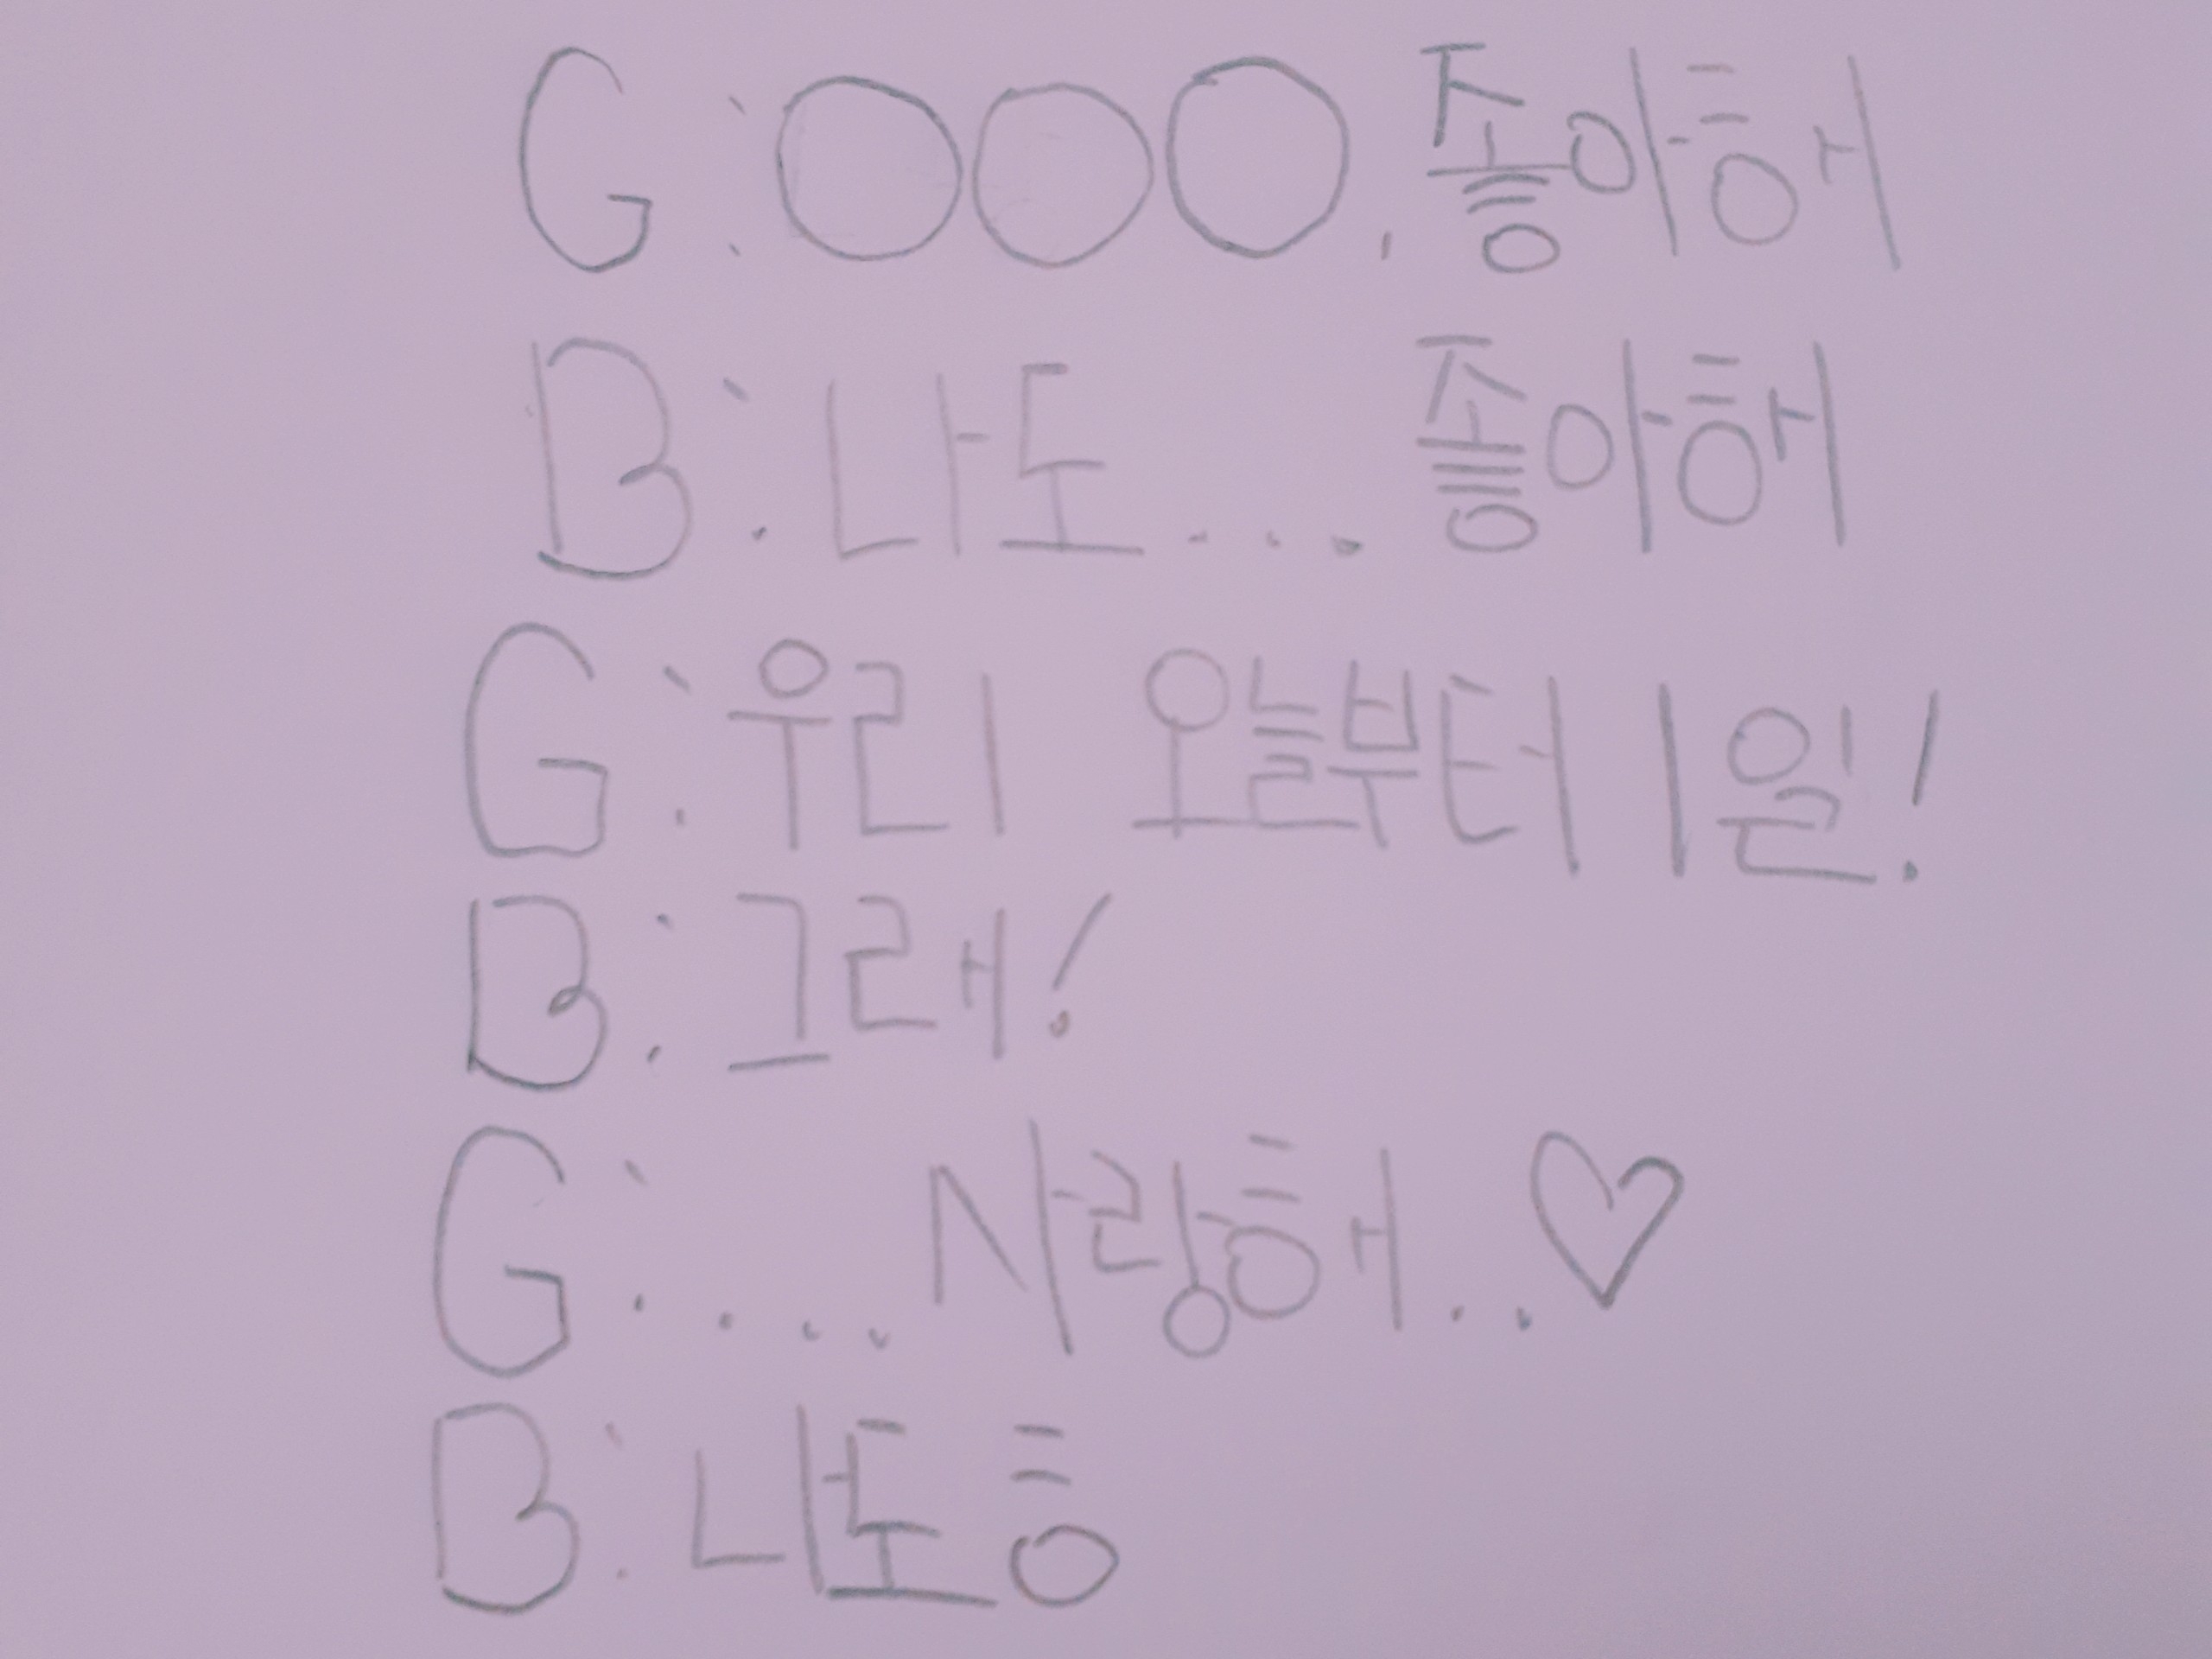 G: ○○○. 좋아해
B: 나도... 좋아해
G: 우리 오늘부터 1일!
B: 그래!
G: ... 사랑해..♡
B: 나도ㅎ